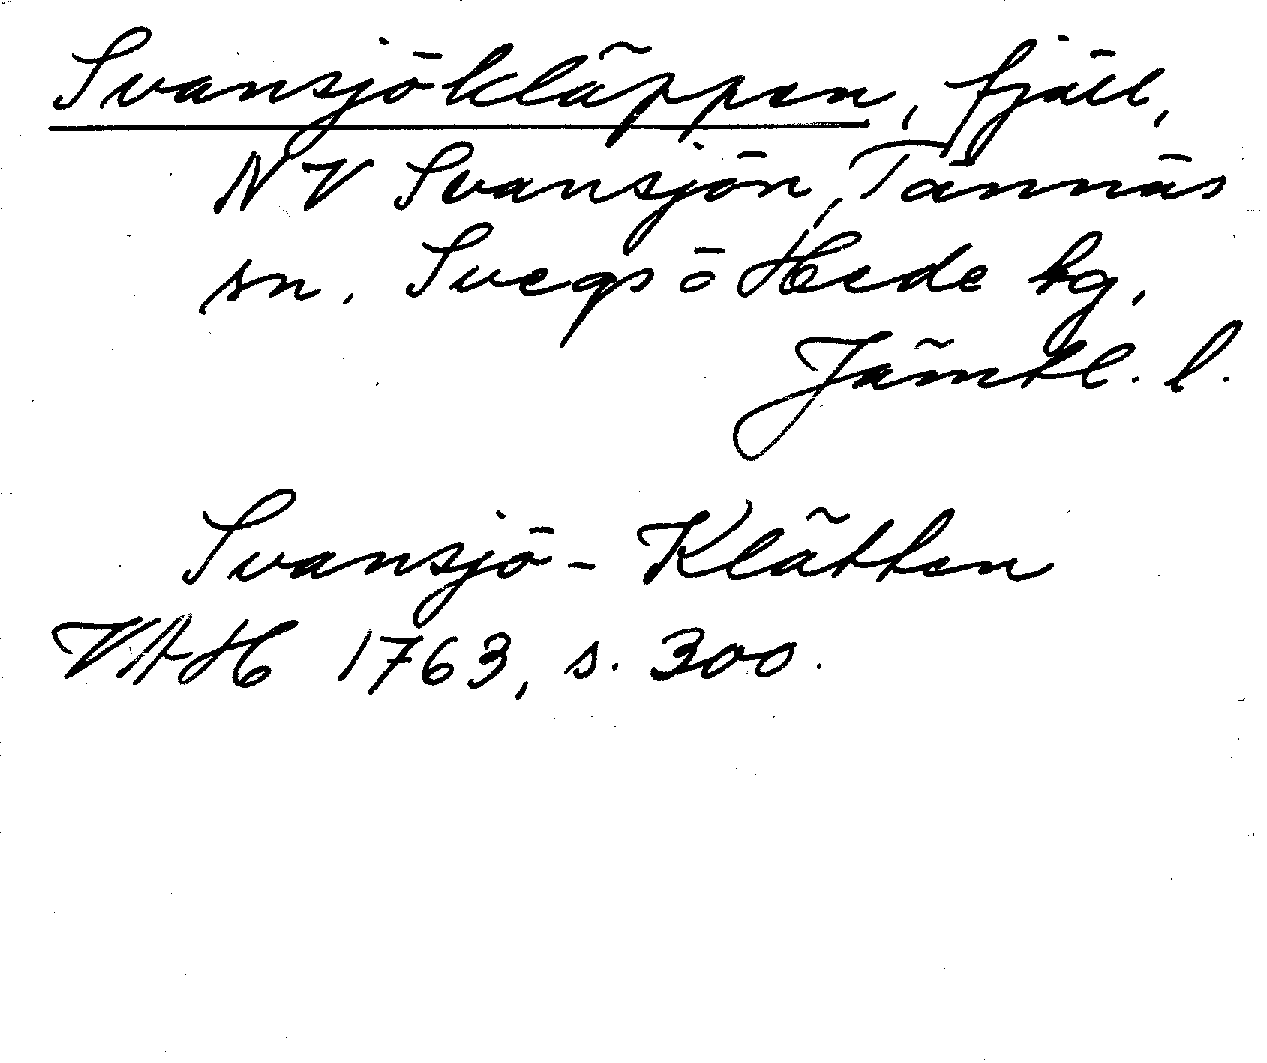 Svansjökläppen, fjäll,
NV Svansjön, Tännäs
sn. Svegs o Hede tg,
Jämtl. l.
Svansjö-Klätten
VAH 1763, s. 300.